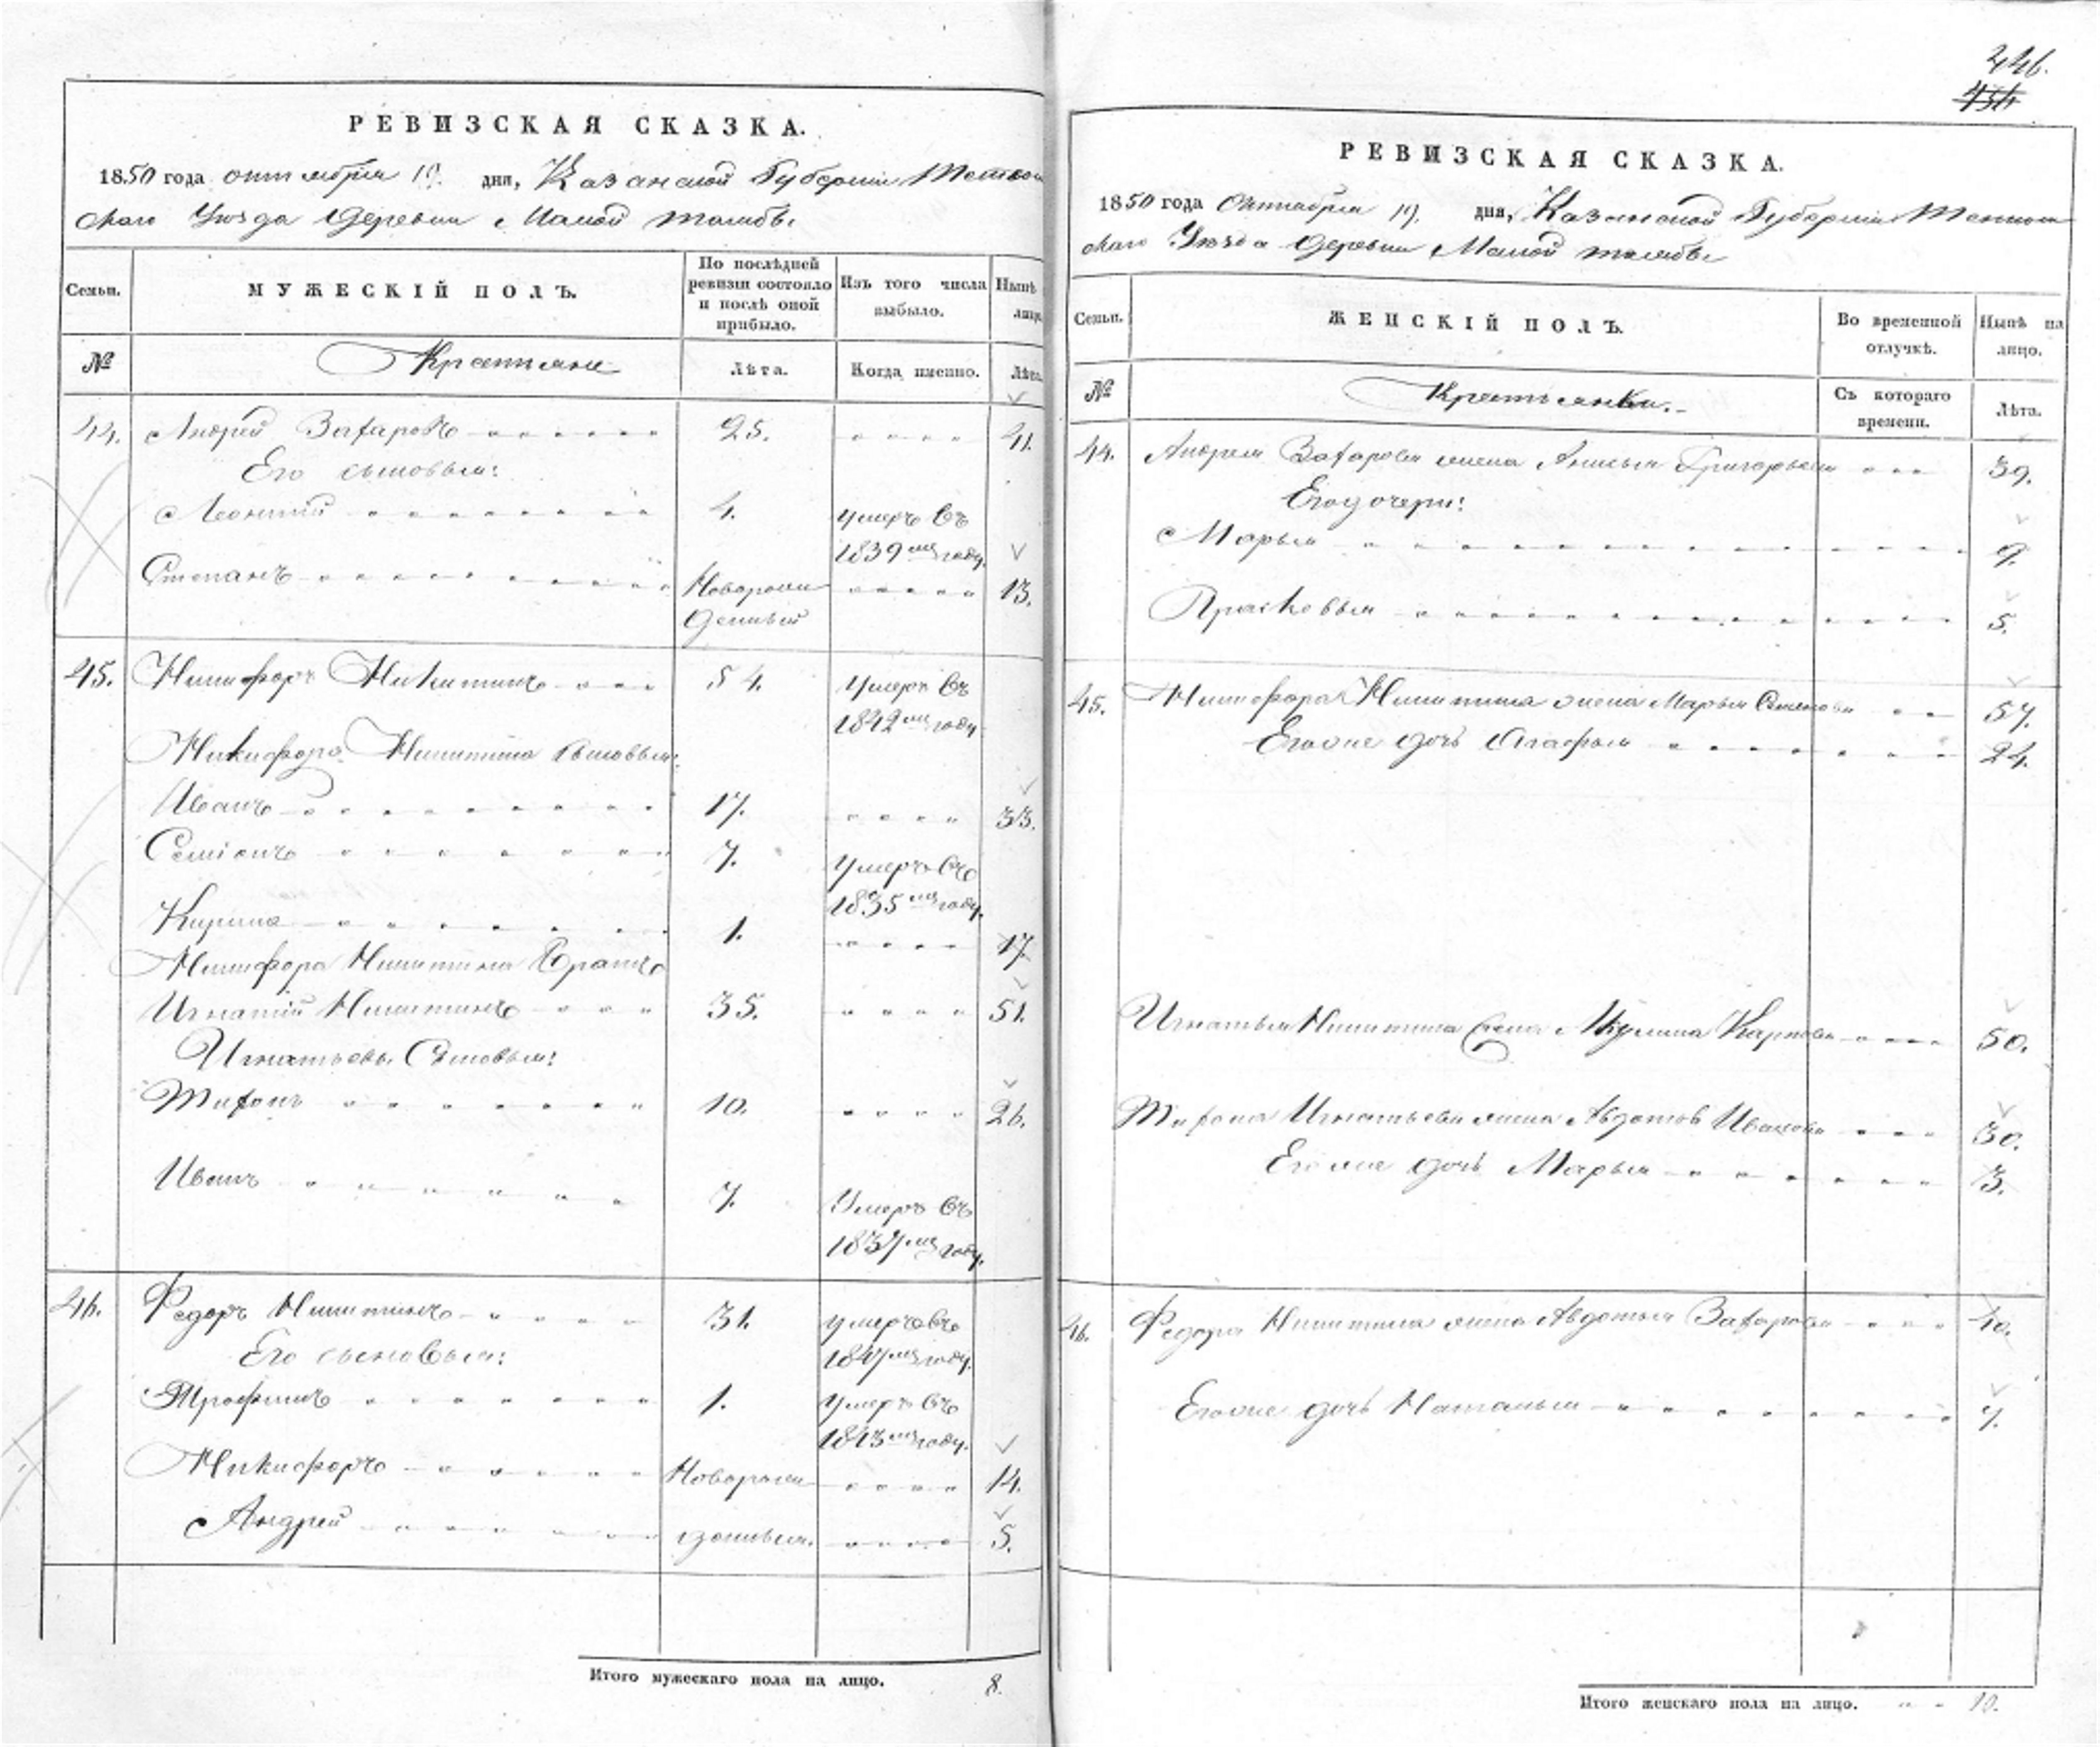 РЕВИЗСКАЯ СКАЗКА.
1850 года октября 19. дня, Казанской Губернии
скаго Уезда Деревни Малой
Семьи.
МУЖЕСКІЙ ПОЛЪ.
По послѣдней ревизіи состояло и послѣ оной прибыло.
Изъ того числа выбыло.
Нынѣ лицо.
№
Крестьяне
Лѣта.
Когда именно.
Лѣта.
44. Андрей Захаровъ 25. 41.
Его сыновья:
Леонтий 4. умеръ въ
1839мъ году.
Степанъ Новорож 13.
денный
45. Никифоръ Никитинъ 54. умеръ въ
1842мъ году
Никифора Никитина сыновья:
Иванъ 17. 33.
Семіонъ 7. умеръ въ
1835мъ году.
Кирила 1. 17.
Никифора Никитина братъ
Игнатій Никитинъ 35. 51.
Игнатьевы Сыновья:
Тихонъ 10. 26.
Иванъ 7. Умеръ въ
1837мъ году.
46. Федоръ Никитинъ 31. умеръ въ
Его сыновья: 1847мъ году.
Трофимъ 1. умеръ въ
1843мъ году.
Никифоръ Новорож 14.
Андрей денныя. 5.
Итого мужескаго пола на лицо. 8.
446.
434
РЕВИЗСКАЯ СКАЗКА.
1850 года Октября 19. дня, Казанской Губернии
скаго Уезда Деревни Малой
Семьи.
ЖЕНСКІЙ ПОЛЪ.
Во временной отлучкѣ.
Нынѣ на лицо.
№
Крестьянки.
Съ котораго времени.
Лѣта.
44. Андрея Захарова жена Анисья Григорьева 39.
Его дочери:
Марья 9.
Прасковья 5.
45. Никифора Никитина жена Марья Семенова 57.
Его же дочь Агафья 24.
Игнатья Никитина жена Акулина Карпова 50.
Тихона Игнатьева жена Авдотья Иванова 30.
Его же дочь Марья 3.
46. Федора Никитина жена Авдотья Захарова 40.
Его же дочь Наталья 7.
Итого женскаго пола на лицо. 10.